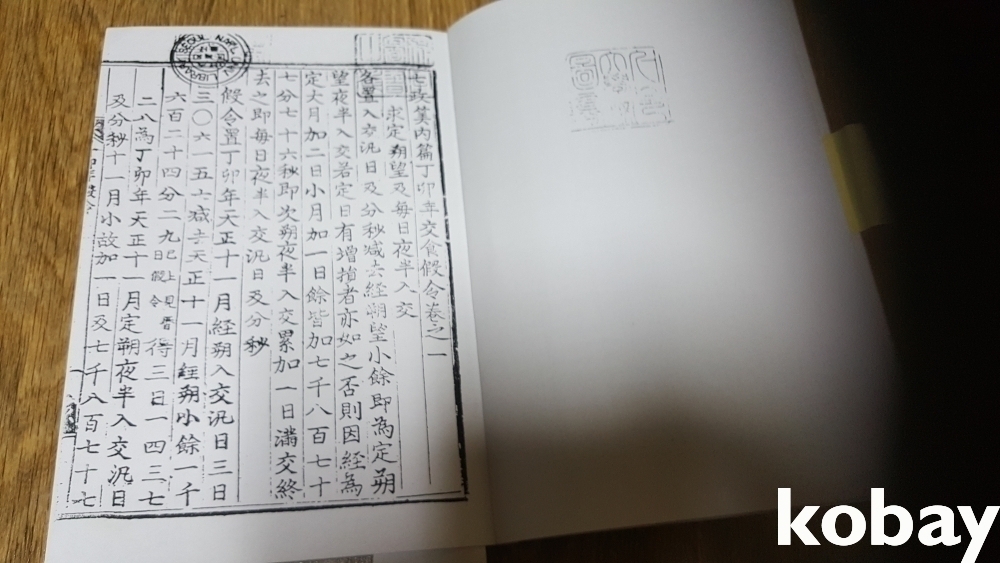 七政筭内篇丁卯年交食假令卷之一
求定朔望及每日夜半入交
各置入交汎日及分秒减去經朔望小餘即為定朔
望夜半入交若定日有增損者亦如之否則因經為
定大月加二日小月加一日餘皆加七千八百七十
七分七十六秒即次朔夜半入交累加一日滿交終
去之即每日夜半入交汎日及分秒
假令置丁卯年天正十一月經朔入交汎日三日
三〇六一五七减去天正十一月經朔小餘一千
六百二十四分二九已上見曆日假令得三日一四三七
二八為丁卯年天正十一月定朔夜半入交汎日
及分秒十一月小故加一日及七千八百七十七
SEOUL NAT'L UNIV. LIBRARY
kobay